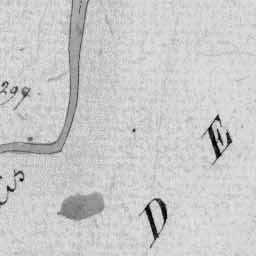 299.
D E
is